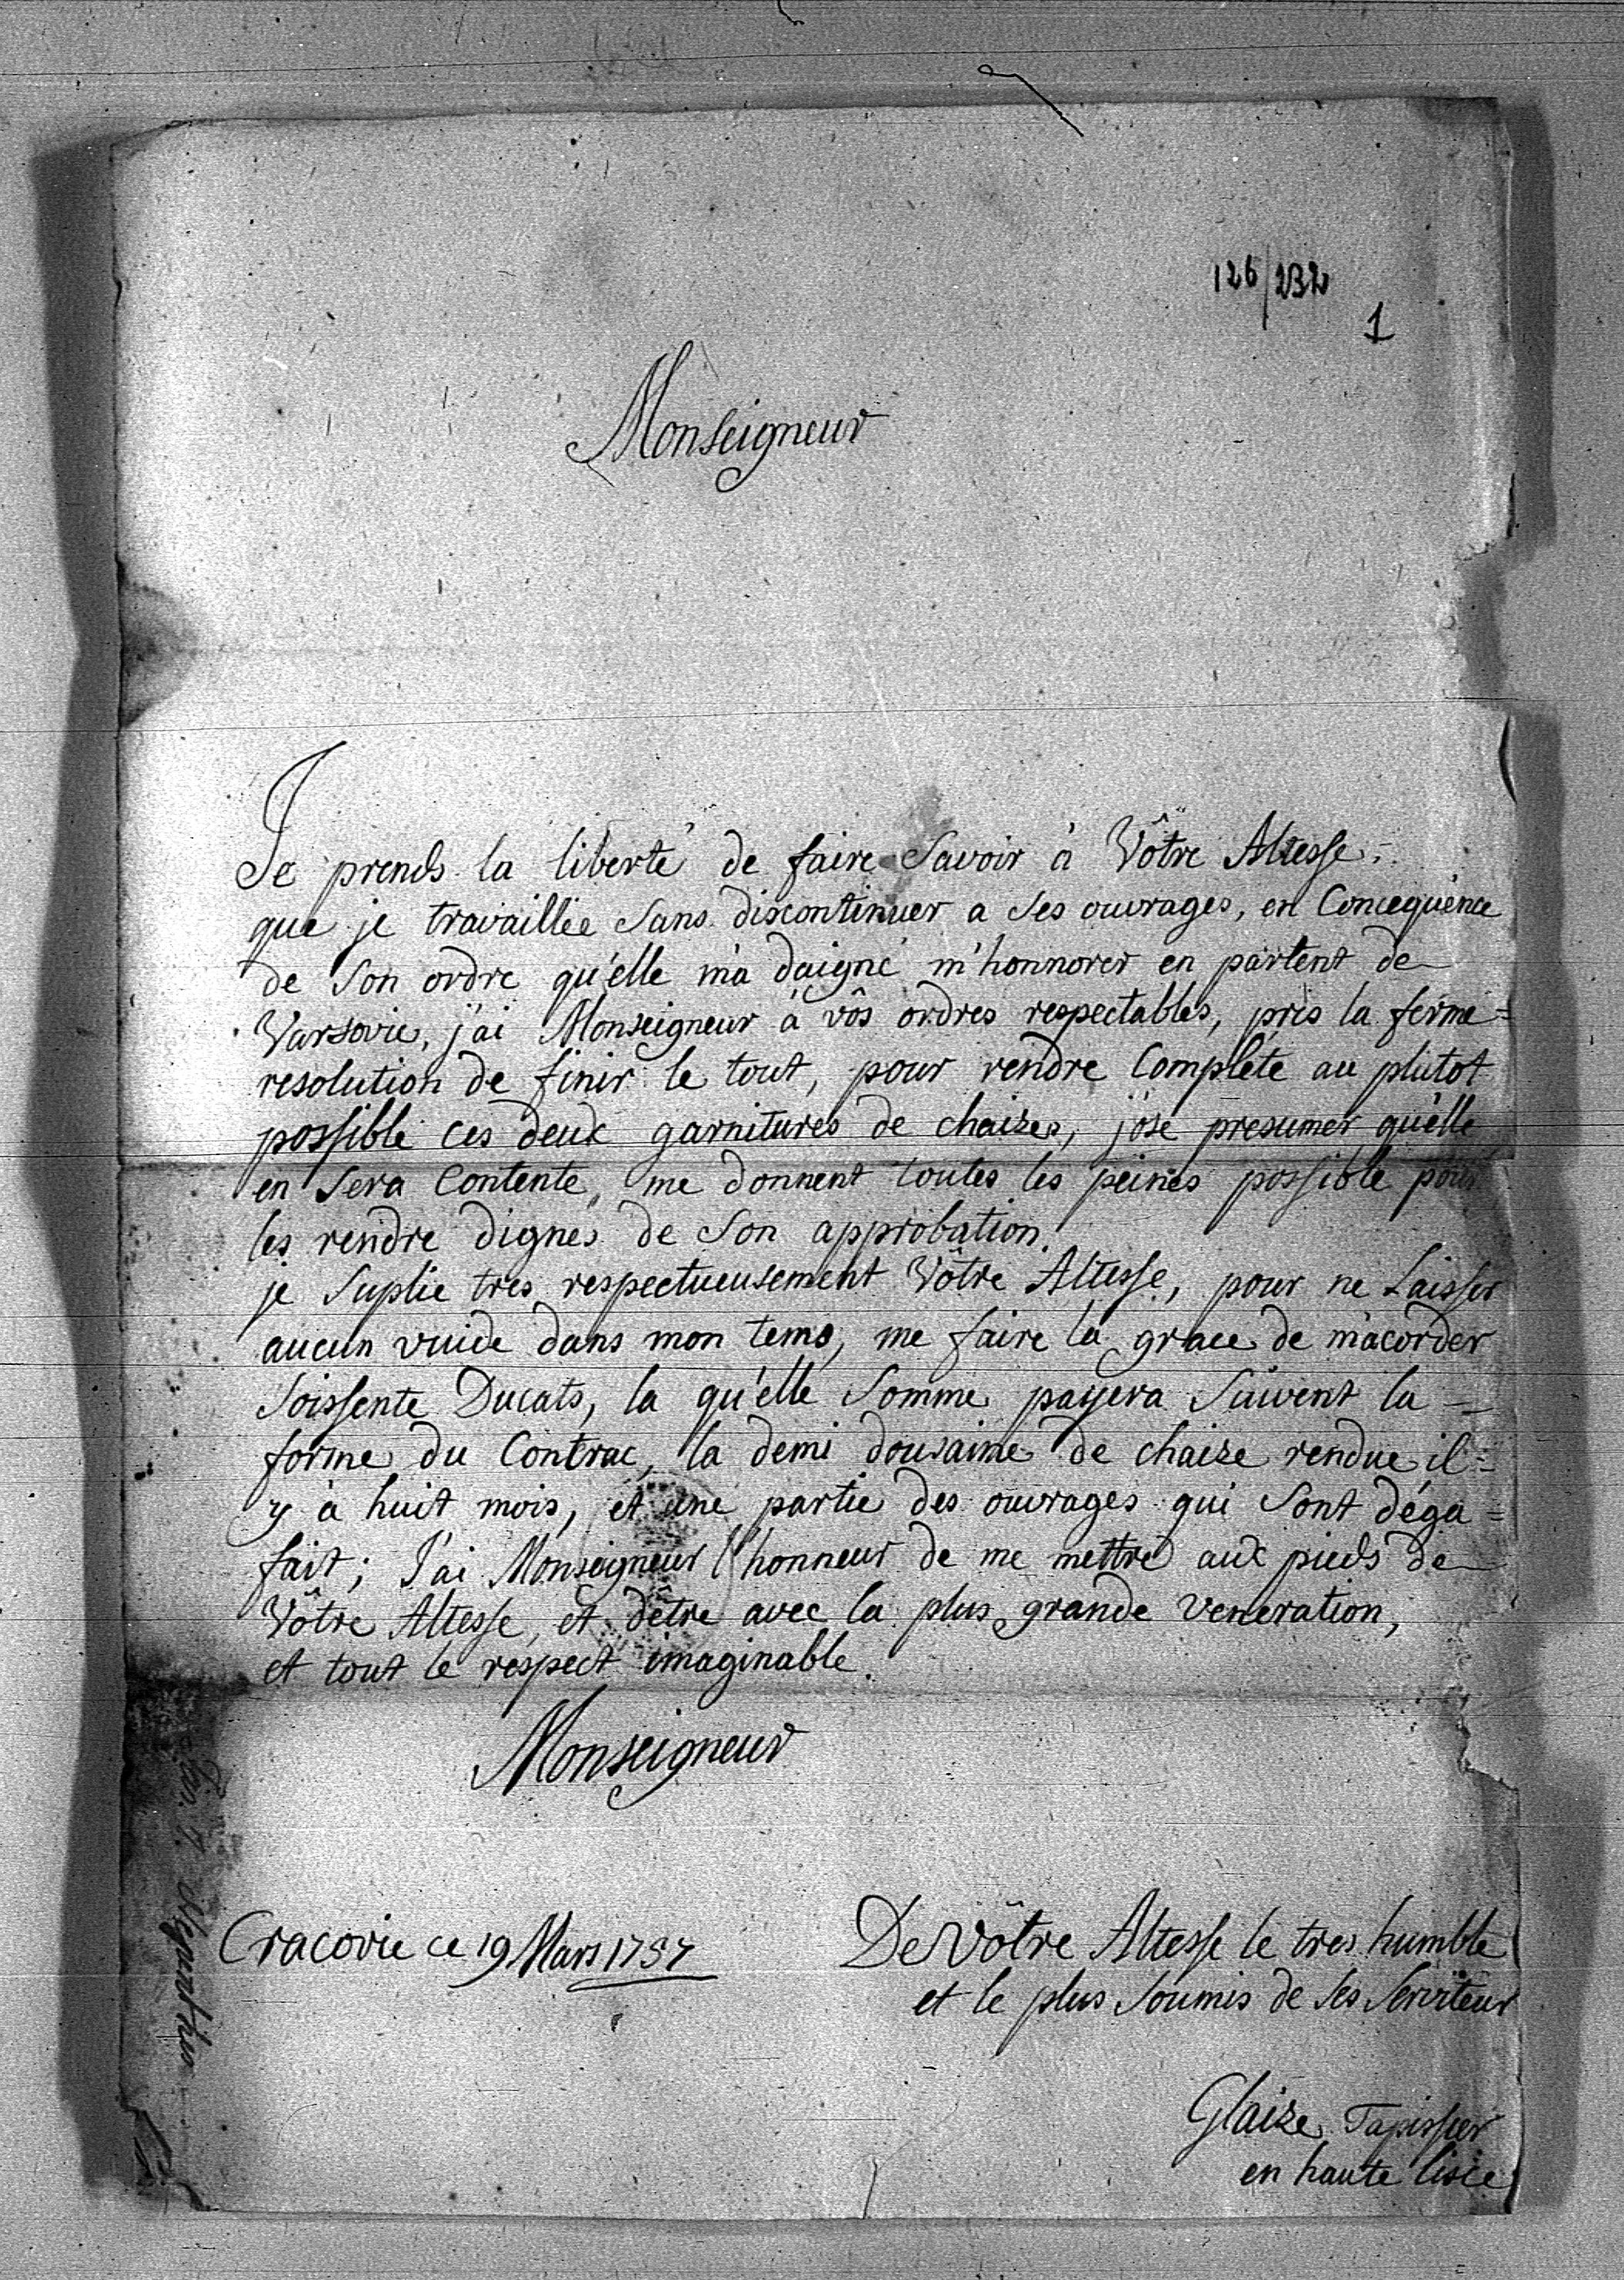 126/232
1
Monseigneur
Je prends la liberté de faire Savoir à Vôtre Altesse =
que je travaillée Sans discontinuer a Ses ouvrages, en Concequence
de Son ordre qu'elle m'a daigné m'honnorer en partent de
Varsovie, j'ai Monseigneur à vôs ordres respectables, pris la ferme =
resolution de finir le tout, pour rendre Complete au plutot
possible ces deux garnitures de chaizes, j'ose presumer qu'elle
en Sera Contente, me donnent toutes les peines possible pour
les rendre dignes de Son approbation.
je Suplie tres respectueusement Vôtre Altesse, pour ne Laisser
aucun vuide dans mon tems, me faire la grace de m'acorder
Soissente Ducats, la qu'elle Somme payera Suivent la
forme du Contrac, la demi dousaine de chaize rendue il =
y à huit mois, et une partie des ouvrages qui Sont déga =
fait; J'ai Monseigneur l'honneur de me mettre aux pieds de
Vôtre Altesse, et d'etre avec la plus grande veneration,
et tout le respect imaginable.
Monseigneur
Cracovie ce 19 Mars 1757
De Vôtre Altesse le tres humble
et le plus Soumis de Ses Serviteur
Glaize Tapissier
en haute lisce